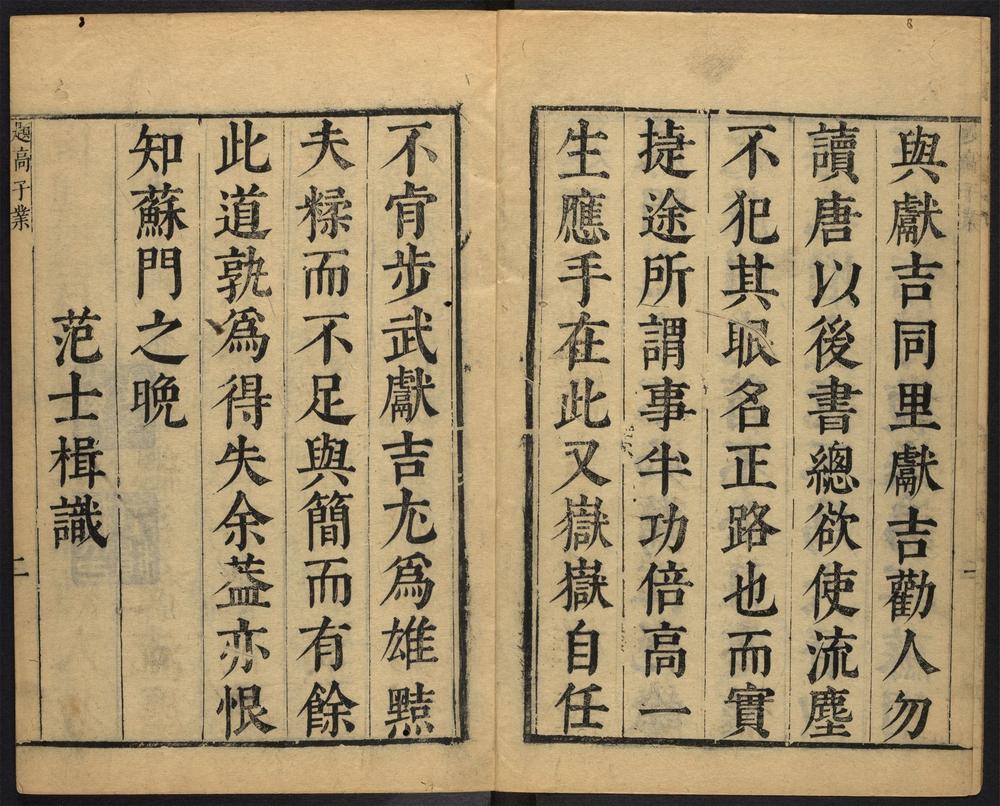 與獻吉同里獻吉勸人勿
讀唐以後書總欲使流塵
不犯其眼名正路也而實
捷途所謂事半功倍高一
生應手在此又嶽嶽自任
不肯步武獻吉尤爲雄黠
夫糅而不足與簡而有餘
此道孰爲得失余葢亦恨
知蘇門之晩
范士楫識
題高子業
二